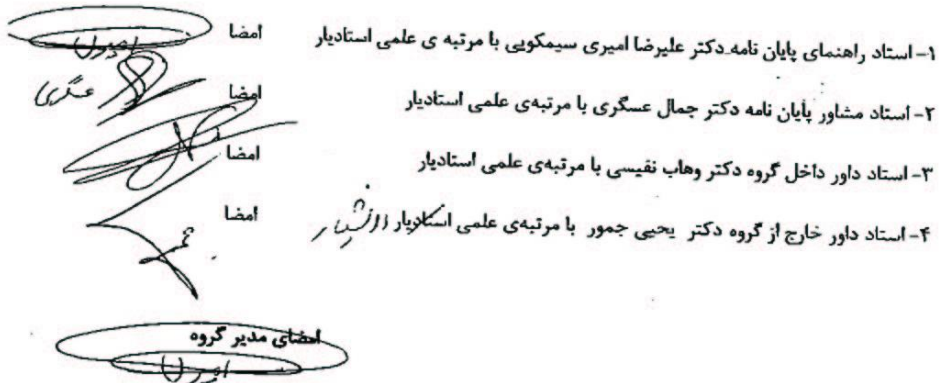 ۱- استاد راهنمای پایان نامه دکتر علیرضا امیری سیمکویی با مرتبه ی علمی استادیار امضا
۲- استاد مشاور پایان نامه دکتر جمال عسگری با مرتبه‌ی علمی استادیار امضا عسگری
۳- استاد داور داخل گروه دکتر وهاب نفیسی با مرتبه‌ی علمی استادیار امضا
۴- استاد داور خارج از گروه دکتر یحیی جمور با مرتبه‌ی علمی استادیار دانشیار امضا
امضای مدیر گروه